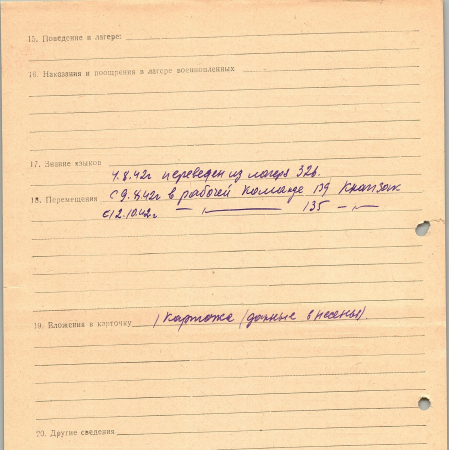 15. Поведение в лагере:
16. Наказания и поощрения в лагере военнопленных
17. Знание языков
4.8.42г переведен из лагеря 326.
18. Перемещения с 9.8.42г в рабочей команде 139
с 12.10.42г. — " — 135 — " —
19. Вложения в карточку 1 карточка (данные внесены).
20. Другие сведения